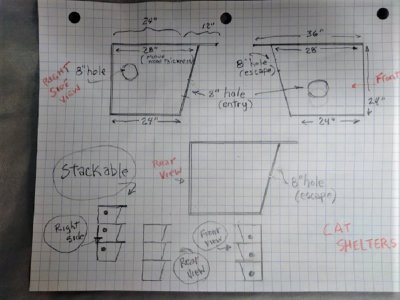 24"
12"
28"
(minus wood thickness)
8" hole
RIGHT
SIDE
VIEW
24"
8" hole
(entry)
36"
28"
8" hole
(escape)
Front
24"
24"
Stackable
Rear
View
8" hole
(escape)
Right
side
Front
View
Rear
View
CAT
SHELTERS